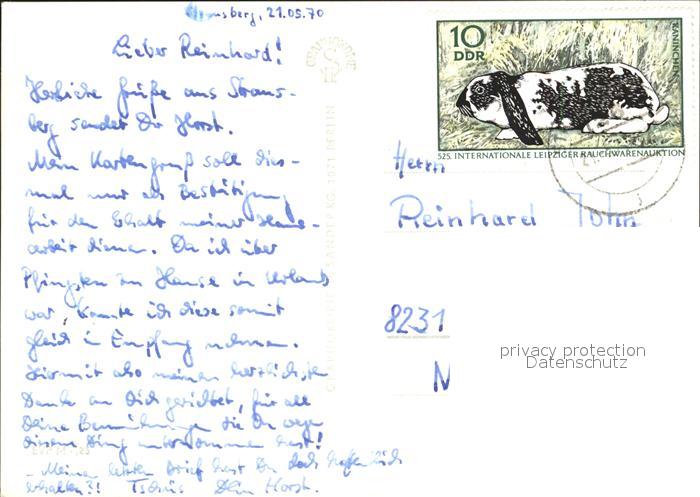 Strausberg, 21.05.70
Lieber Reinhard!
Herzliche Grüße aus Straus-
berg sendet Dir Horst.
Mein Kartengruß soll dies-
mal nur als Bestätigung
für den Erhalt meiner Haus-
arbeit dienen. Da ich über
Pfingsten zu Hause in Urlaub
war, konnte ich diese somit
gleich in Empfang nehmen.
Hiermit also meinen herzlichsten
Dank an Dich gerichtet, für all
Deine Bemühungen die Du wegen
diesem Ding unternommen hast!
- Meinen letzten Brief hast Du doch hoffentlich
erhalten?! Tschüs Dein Horst.
10
DDR
KANINCHEN
525. INTERNATIONALE LEIPZIGER RAUCHWARENAUKTION
Herrn
Reinhard John
8231
N
privacy protection
Datenschutz